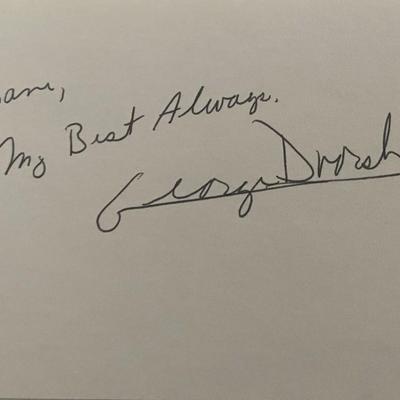 My Best Always.
George Dvorsk